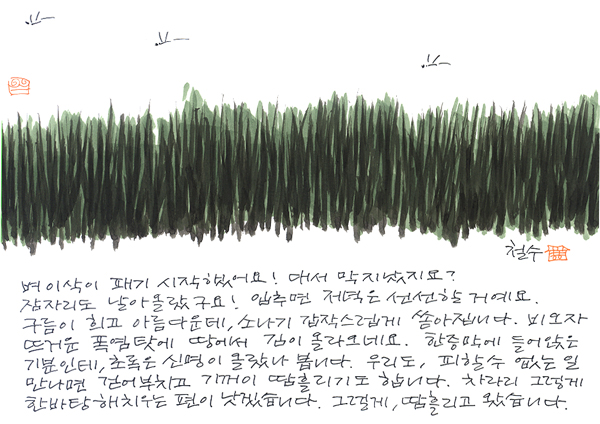 철수
벼이삭이 패기 시작했어요! 대서 막 지났지요?
잠자리도 날아올랐구요! 입추면 저녁은 선선할 거예요.
구름이 희고 아름다운데, 소나기 갑작스럽게 쏟아집니다. 비 오자
뜨거운 폭염 탓에 땅에서 김이 올라오네요. 한증막에 들어앉은
기분인데, 초록은 신명이 올랐나 봅니다. 우리도, 피할 수 없는 일
만나면 걷어부치고 기꺼이 땀 흘리기도 합니다. 차라리 그렇게
한바탕 해치우는 편이 낫겠습니다. 그렇게, 땀 흘리고 왔습니다.